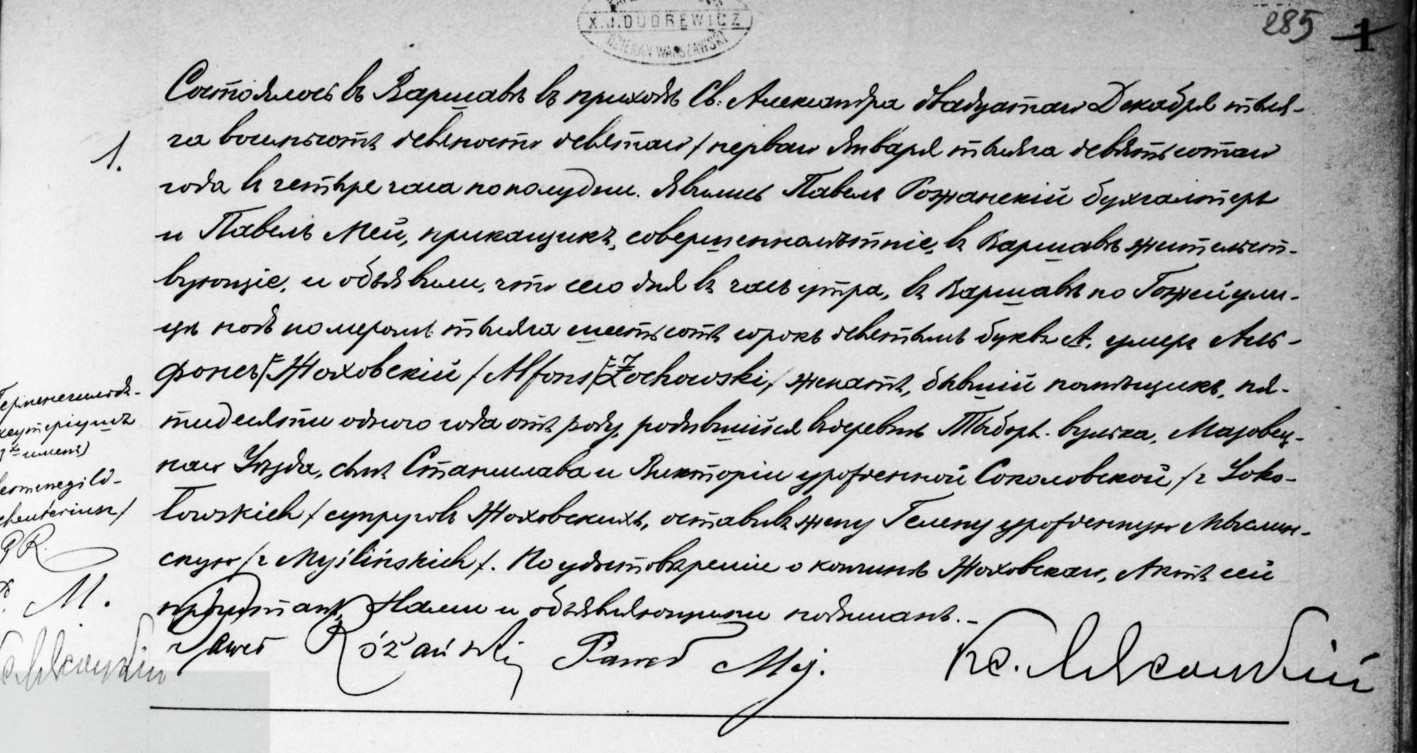 X.J. DUDREWICZ
DZIEKAN WARSZAWSKI
285 1
1.
Состоялось въ Варшавѣ въ приходѣ Св. Александра двадцатаго Декабря тыся-
ча восемьсотъ девяносто девятаго / перваго Января тысяча девятьсотаго
года въ четыре часа по полудни. Явились Павелъ Рожанскій бухгалтеръ
и Павелъ Мей, прикащикъ, совершеннолѣтніе, въ Варшавѣ жительст-
вующіе, и объявили, что сего дня въ часъ утра, въ Варшавѣ по Гожей ули-
цѣ подъ номеромъ тысяча шестьсотъ сорокъ девятымъ буква А, умеръ Аль-
фонсъ Жоховскій / Alfons Żochowski / женатъ, бывшій помѣщикъ, пя-
тидесяти одного года отъ роду, родившійся въ деревнѣ Тыборъ-вулька, Мазовец-
каго Уѣзда, сынъ Станислава и Викторіи урожденной Соколовской / z Soko-
łowskich / супруговъ Жоховскихъ, оставивъ жену Гелену урожденную Мыслин-
скую / z Myślińskich /. По удостовѣреніи о кончинѣ Жоховскаго, Актъ сей
прочитанъ, Нами и объявляющими подписанъ.
Paweł Różański Paweł Mej.
имени)
Hermenegild-
P R
M.